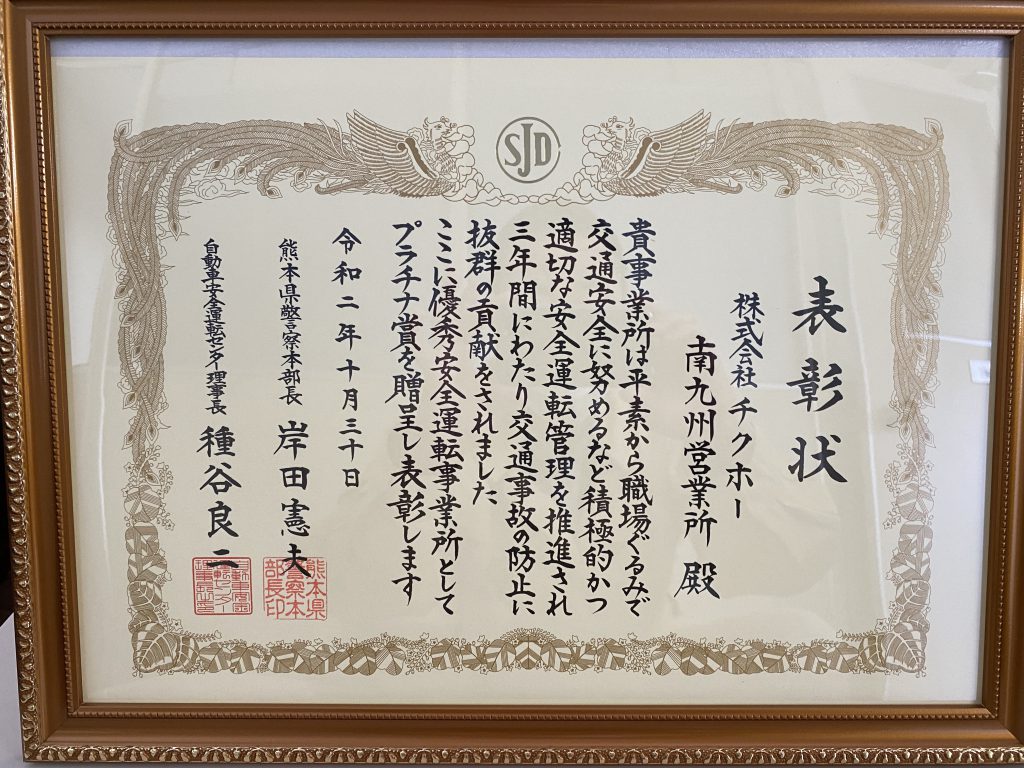 SJD
表彰状
株式会社 チクホー
南九州営業所 殿
貴事業所は平素から職場ぐるみで
交通安全に努めるなど積極的かつ
適切な安全運転管理を推進され
三年間にわたり交通事故の防止に
抜群の貢献をされました
ここに優秀安全運転事業所として
プラチナ賞を贈呈し表彰します
令和二年十月三十日
熊本県警察本部長 岸田憲夫
熊本県警察本部長印
自動車安全運転センター理事長 種谷良二